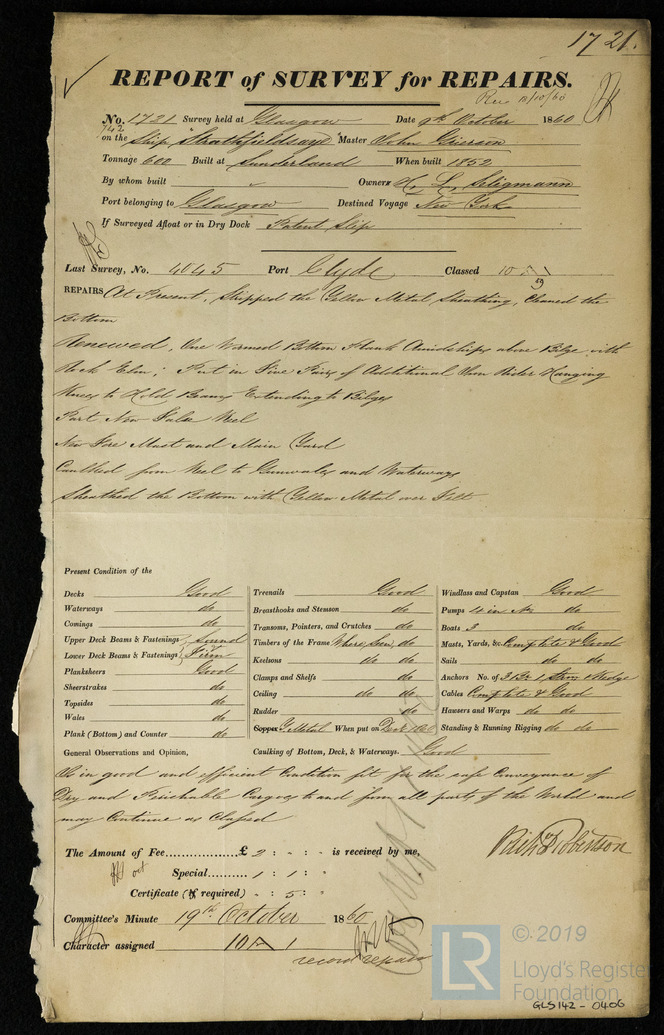 1721.
REPORT of SURVEY for REPAIRS.
Rec 10/10/60
No. 1721 Survey held at Glasgow Date 9th October 1860
742
on the Ship "Strathfieldsaye" Master John Grierson
Tonnage 600 Built at Sunderland When built 1852
By whom built Owners H. L. Seligmann
Port belonging to Glasgow Destined Voyage New York
If Surveyed Afloat or in Dry Dock Patent Slip
Last Survey, No. 4045 Port Clyde Classed 10 A 1
59
REPAIRS At Present, Stripped the Yellow Metal Sheathing, Cleaned the
Bottom
Renewed, One Wormed Bottom Plank Amidships above Bilge with
Rock Elm; Put in Five Pairs of Additional Iron Rider Hanging
Knees to Hold Beams Extending to Bilges
Part New False Keel
New Fore Mast and Main Yard
Caulked from Keel to Gunwales and Waterways
Sheathed the Bottom with Yellow Metal over Felt
Present Condition of the
Decks Good
Waterways do
Comings do
Upper Deck Beams & Fastenings Sound
Lower Deck Beams & Fastenings & Firm
Planksheers Good
Sheerstrakes do
Topsides do
Wales do
Plank (Bottom) and Counter do
Treenails Good
Breasthooks and Stemson do
Transoms, Pointers, and Crutches do
Timbers of the Frame Where Seen, do
Keelsons do do
Clamps and Shelfs do
Ceiling do do
Rudder do
Copper Y. Metal When put on 1860
Caulking of Bottom, Deck, & Waterways. Good
Windlass and Capstan Good
Pumps 4 in No. do
Boats 3 do
Masts, Yards, &c. Complete & Good
Sails do do
Anchors No. of 3 Br 1 Strm 1 Kedge
Cables Complete & Good
Hawsers and Warps do do
Standing & Running Rigging do do
General Observations and Opinion,
Is in good and efficient Condition fit for the safe Conveyance of
Dry and Perishable Cargoes to and from all parts of the World and
may Continue as Classed
The Amount of Fee £ 2 : - : - is received by me,
Robertson
oct Special 1 : 1 : -
Certificate (if required) - : 5 : -
Committee's Minute 19th October 1860
Character assigned 10 A 1
record repairs
LR
© 2019
Lloyd's Register
Foundation
GLS142-0406